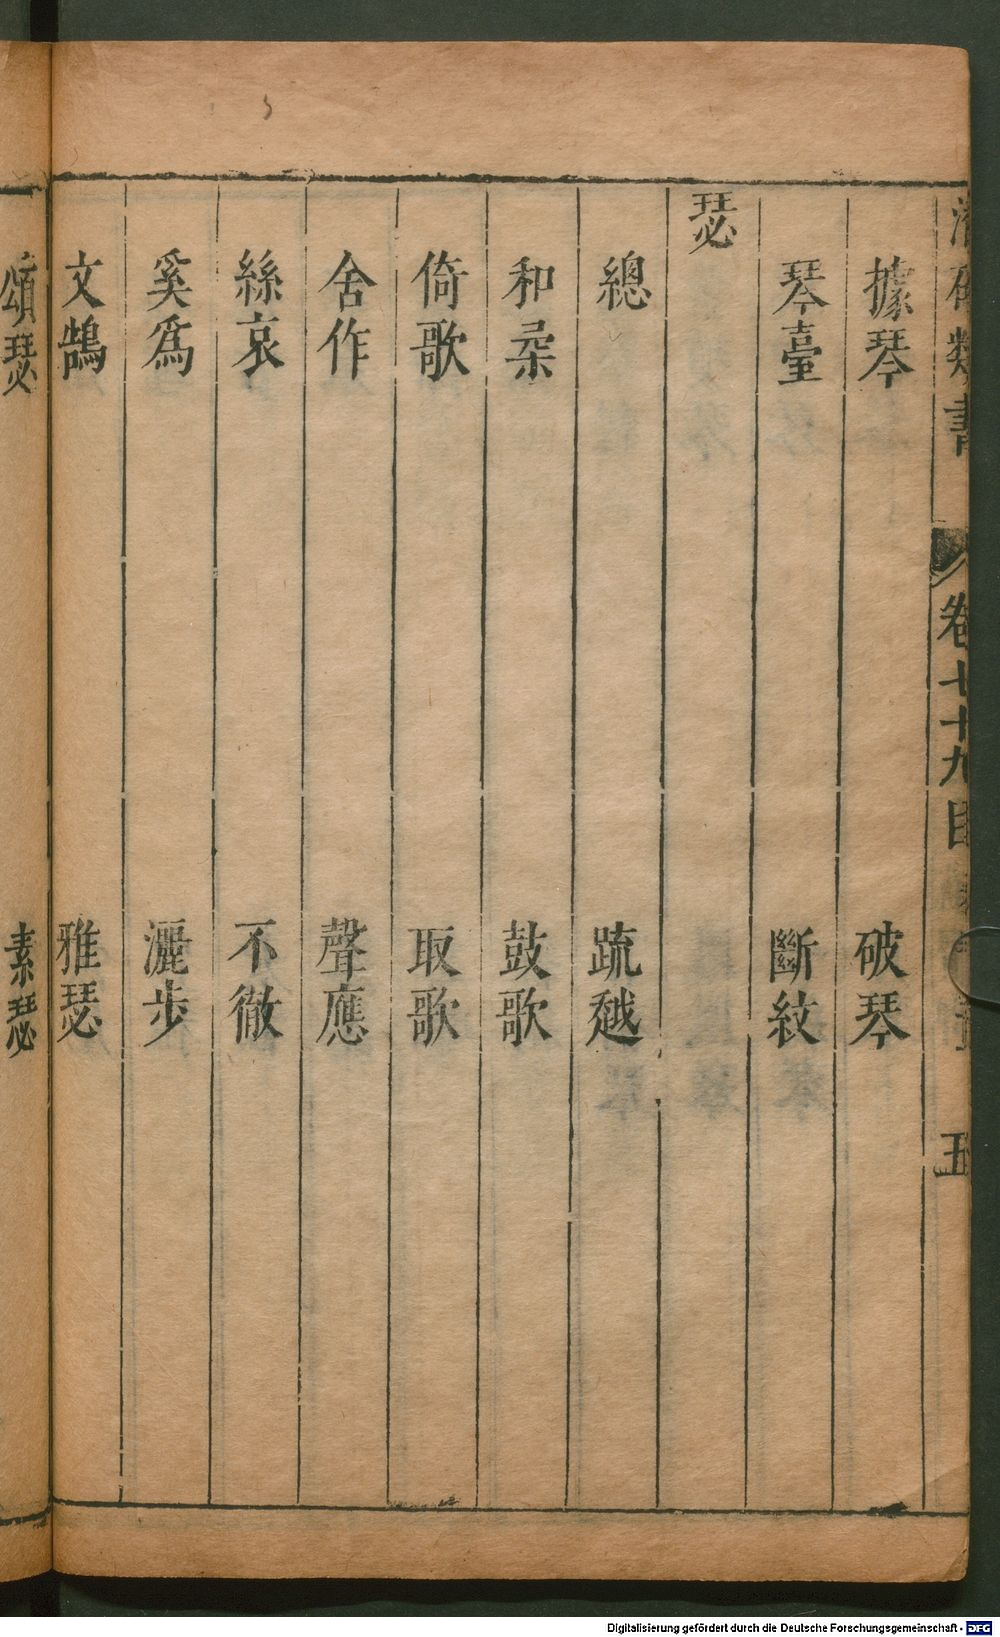 類書 卷七十九目 五
據琴 破琴
琴臺 斷紋
瑟
總 疏越
和 鼓歌
倚歌 取歌
舍作 聲應
絲哀 不徹
奚爲 灑步
文鵠 雅瑟
頌瑟 素瑟
Digitalisierung gefördert durch die Deutsche Forschungsgemeinschaft - DFG